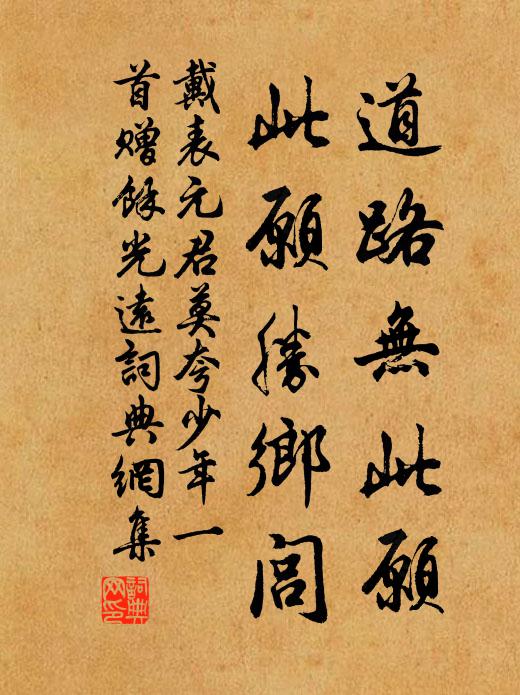 道路無此願
此願勝鄉閭
戴表元君莫夸少年一
首贈餘光遠詞典網集
詞典網印